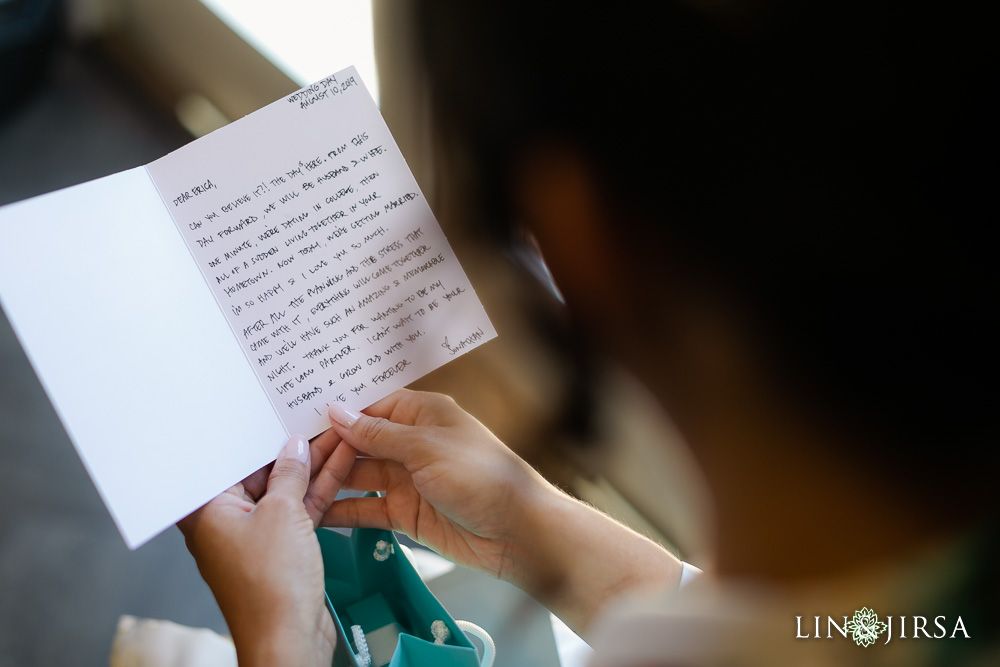 WEDDING DAY
AUGUST 10, 2019
DEAR ERICA,
CAN YOU BELIEVE IT?!! THE DAY'S HERE. FROM THIS
DAY FORWARD, WE WILL BE HUSBAND & WIFE.
ONE MINUTE, WE'RE DATING IN COLLEGE, THEN
ALL OF A SUDDEN LIVING TOGETHER IN YOUR
HOMETOWN. NOW TODAY, WE'RE GETTING MARRIED.
I'M SO HAPPY & I LOVE YOU SO MUCH.
AFTER ALL THE PLANNING AND THE STRESS THAT
CAME WITH IT, EVERYTHING WILL COME TOGETHER
AND WE'LL HAVE SUCH AN AMAZING & MEMORABLE
NIGHT. THANK YOU FOR WANTING TO BE MY
LIFE LONG PARTNER. I CAN'T WAIT TO BE YOUR
HUSBAND & GROW OLD WITH YOU.
I LOVE YOU FOREVER
JONATHAN
LIN & JIRSA